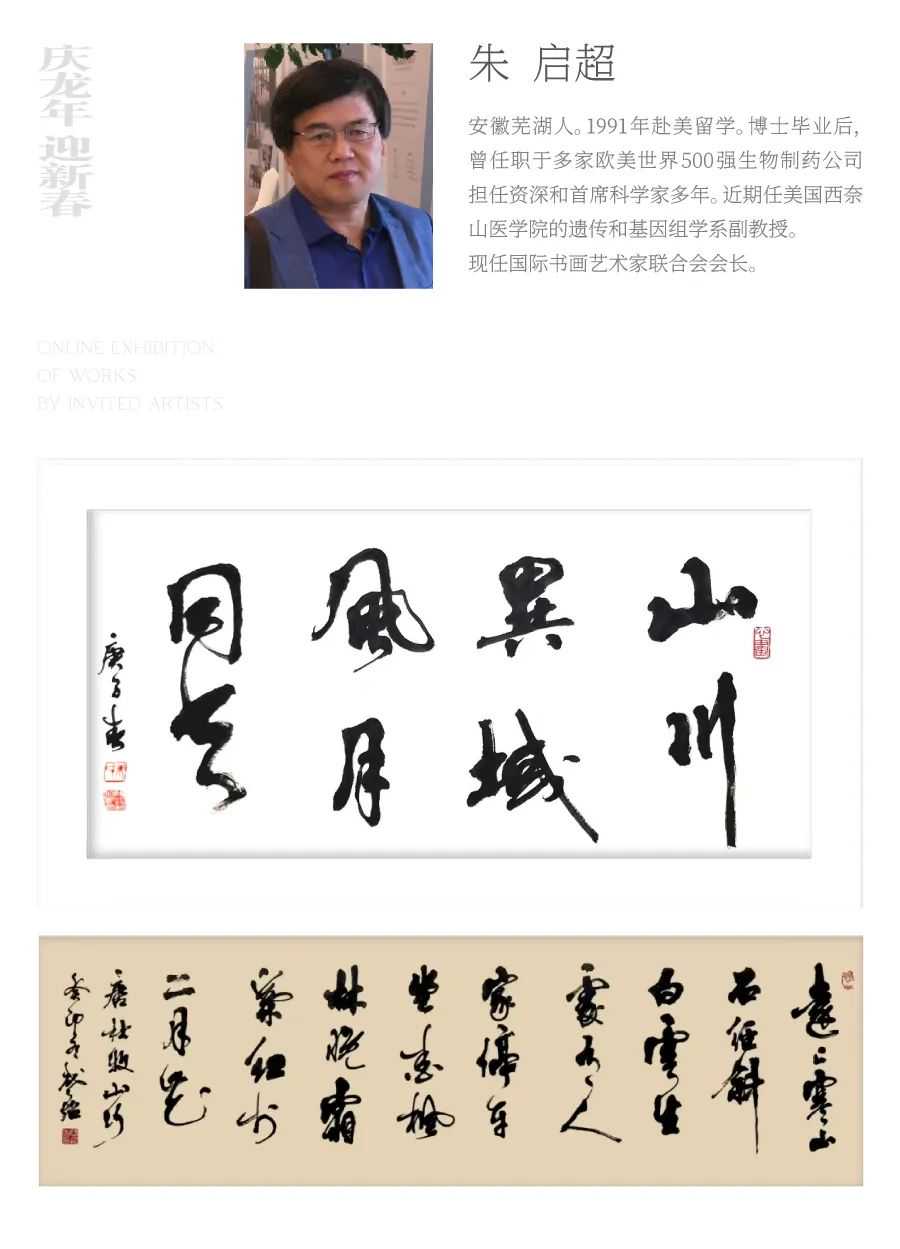 庆龙年 迎新春
朱 启超
安徽芜湖人。1991年赴美留学。博士毕业后,
曾任职于多家欧美世界500强生物制药公司
担任资深和首席科学家多年。近期任美国西奈
山医学院的遗传和基因组学系副教授。
现任国际书画艺术家联合会会长。
ONLINE EXHIBITION
OF WORKS
BY INVITED ARTISTS
山川
異域
風月
同天
庚子春
遠上寒山
石径斜
白雲生
處有人
家停车
坐愛楓
林晚霜
葉红於
二月花
唐杜牧山行
癸卯冬啟超